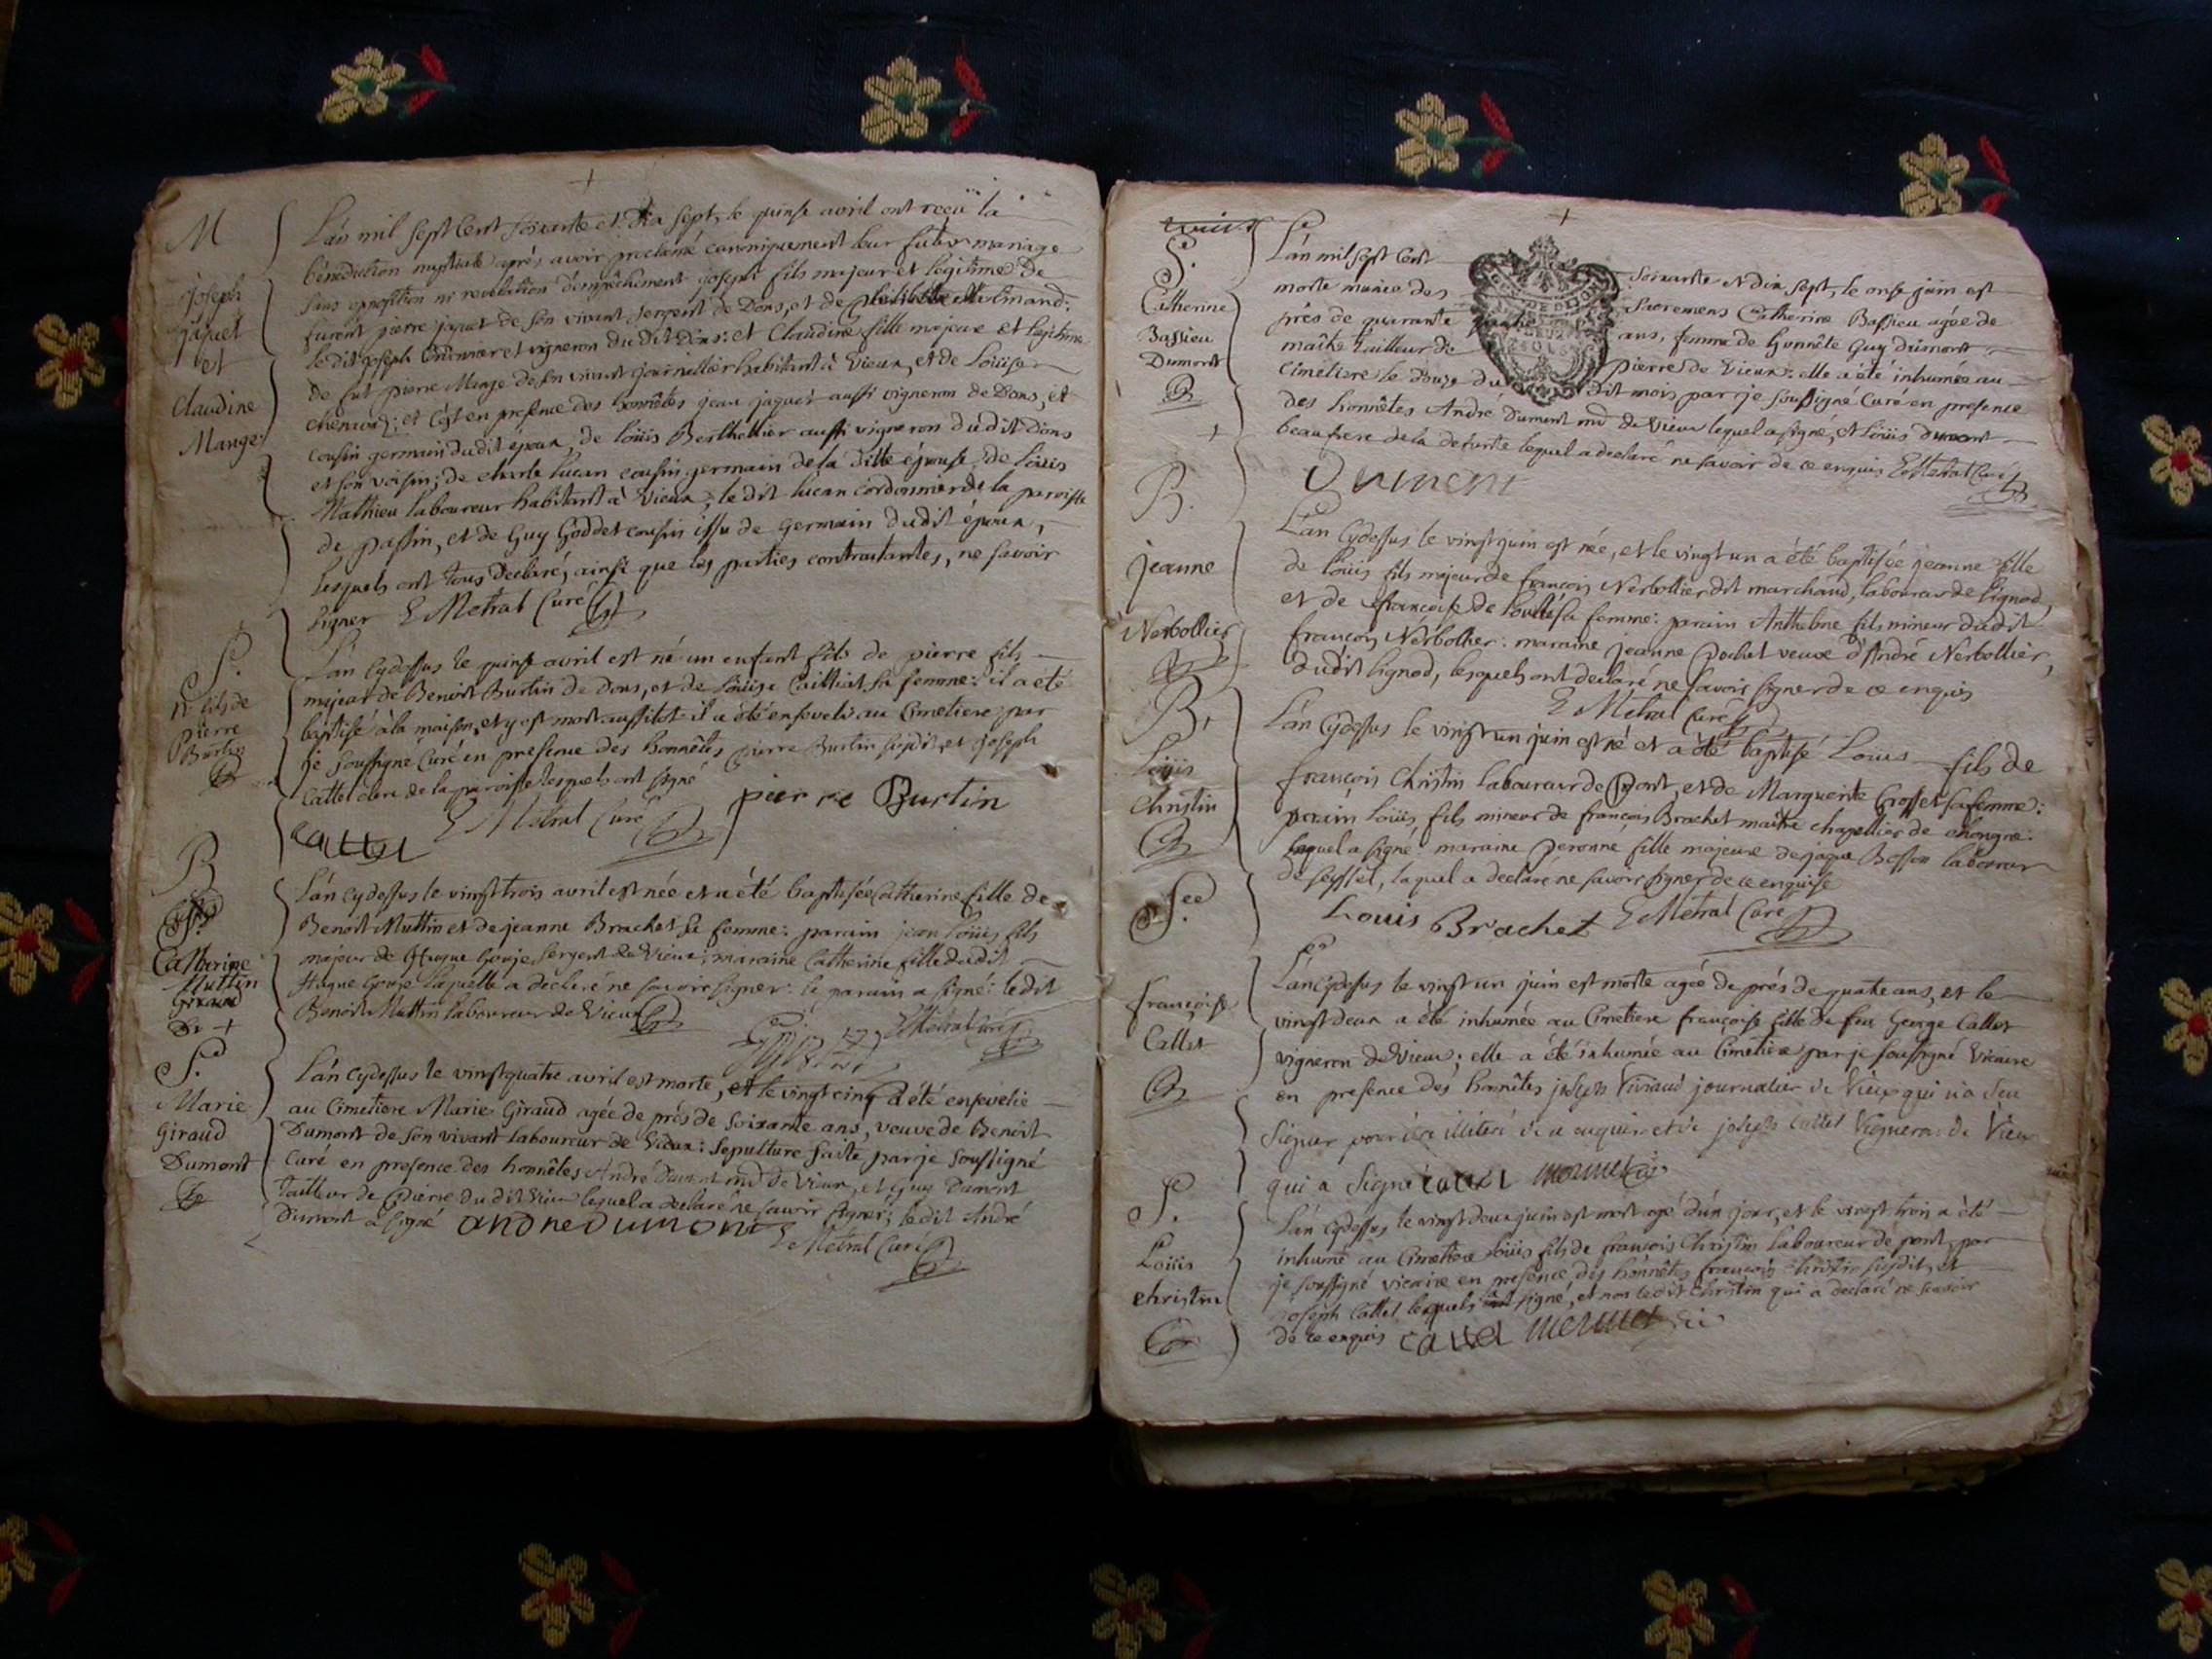 M
Joseph
jaquet
et
Claudine
Mange
L'an mil sept cent soixante et dix sept, le quinse avril ont reçu la
bénédiction nuptiale après avoir proclamé canoniquement leur futur mariage
sans opposition ni revelation d'empêchement joseph fils majeur et legitime de
furent pierre jaquet de son vivant sergent de Dons, et de
ledit joseph et vigneron dudit Dons: et Claudine fille majeure et legitime
de fut pierre Mange de son vivant journallier habitant à Vieux, et de Louise
et c'est en presence des honnêtes jean jaquet aussi vigneron de Dons, et
cousin germain dudit epoux, de loüis Berthellier aussi vigneron dudit Dons
et son voisin; de charle lucan cousin germain de la ditte épouse, de loüis
Mathieu laboureur habitant à Vieux; le dit lucan cordonnier de la paroisse
de passin, et de Guy Goddet cousin issu de germain dudit époux,
lesquels ont tous declaré, ainsi que les parties contractantes, ne savoir
signer E Metral Curé
S.
fils de
pierre
Burtin
L'an cydessus le quinse avril est né un enfant fils de pierre fils
majeur de Benoit Burtin de Dons, et de Loüise Cailliat sa femme: il a été
baptisé à la maison, et y est mort aussitot il a été enseveli au Cimetiere par
je soussigné Curé en presence des honnêtes pierre Burtin susdit, et joseph
Cattel clerc de la paroisse lesquels ont signé
pierre Burtin
E Metral Curé
B
Catherine
Muttin
L'an cydessus le vingt trois avril est née et a été baptisée Catherine fille de
Benoit Muttin et de jeanne Brachet sa femme: parain jean loüis fils
majeur de Hugue Gouje sergent de Vieux; maraine Catherine fille dudit
Hugue Gouje laquelle a declaré ne savoir signer: le parain a signé: le dit
Benoit Muttin laboureur de Vieux
E Metral Curé
S.
Marie
Giraud
Dumont
L'an cydessus le vingt quatre avril est morte, et le vingt cinq a été ensevelie
au Cimetiere Marie Giraud agée de près de soixante ans, veuve de Benoit
Dumont de son vivant laboureur de Vieux: sepulture faite par je soussigné
Curé en presence des honnêtes André Dumont md de Vieux, et Guy Dumont
tailleur de pierre du dit Vieux lequel a declaré ne savoir signer; le dit André
Dumont a signé andre Dumont
E Metral Curé
S.
Catherine
Bassieu
Dumont
L'an mil sept cent soixante et dix sept, le onse juin est
morte munie des sacremens Catherine Bassieu agée de
près de quarante quatre ans, femme de honnête Guy Dumont
maître tailleur de pierres de Vieux: elle a été inhumée au
Cimetiere le douze du dit mois par je soussigné Curé en presence
des honnêtes André Dumont md de Vieux lequel a signé, et loüis Dumont
beaufrere de la defunte lequel a declaré ne savoir de ce enquis E Metral Curé
Dumont
B.
jeanne
Nerbollier
L'an cydessus le vingt juin est née, et le vingt un a été baptisée jeanne fille
de loüis fils majeur de françois Nerbollier dit marchand, laboureur de lignod,
et de françoise de sa femme: parain Anthelme fils mineur dudit
françois Nerbollier: maraine jeanne Pochet veuve d'André Nerbollier,
dudit lignod, lesquels ont declaré ne savoir signer de ce enquis
E Metral Curé
B.
Loüis
Christin
L'an cydessus le vingt un juin est né et a été baptisé Loüis fils de
françois Christin laboureur de Pont, et de Marguerite Crosset sa femme:
parain loüis fils mineur de françois Brachet maitre chapellier de chongne:
lequel a signé: maraine peronne fille majeure de jaque Besson laboureur
de seyssel, laquel a declaré ne savoir signer de ce enquise
Louis Brachet E Metral Curé
françoise
Callet
L'an cydessus le vingt un juin est morte agée de près de quatre ans, et le
vingt deux a été inhumée au Cimetiere françoise fille de feu George Callet
vigneron de Vieux; elle a été inhumée au Cimetiere par je soussigné Vicaire
en presence des honnêtes joseph Viviand journalier de Vieux qui n'a sçu
signer pour être illitéré de ce enquis et de joseph Cattel Vigneron de Vieux
qui a signé cattel mermet
S.
Loüis
christin
L'an cydessus le vingt deux juin est mort agé d'un jour, et le vingt trois a été
inhumé au Cimetiere loüis fils de françois Christin laboureur de pont, par
je soussigné vicaire en presence des honnêtes françois christin susdit, et
joseph Cattel lequel a signé, et non ledit christin qui a declaré ne scavoir
de ce enquis cattel mermet